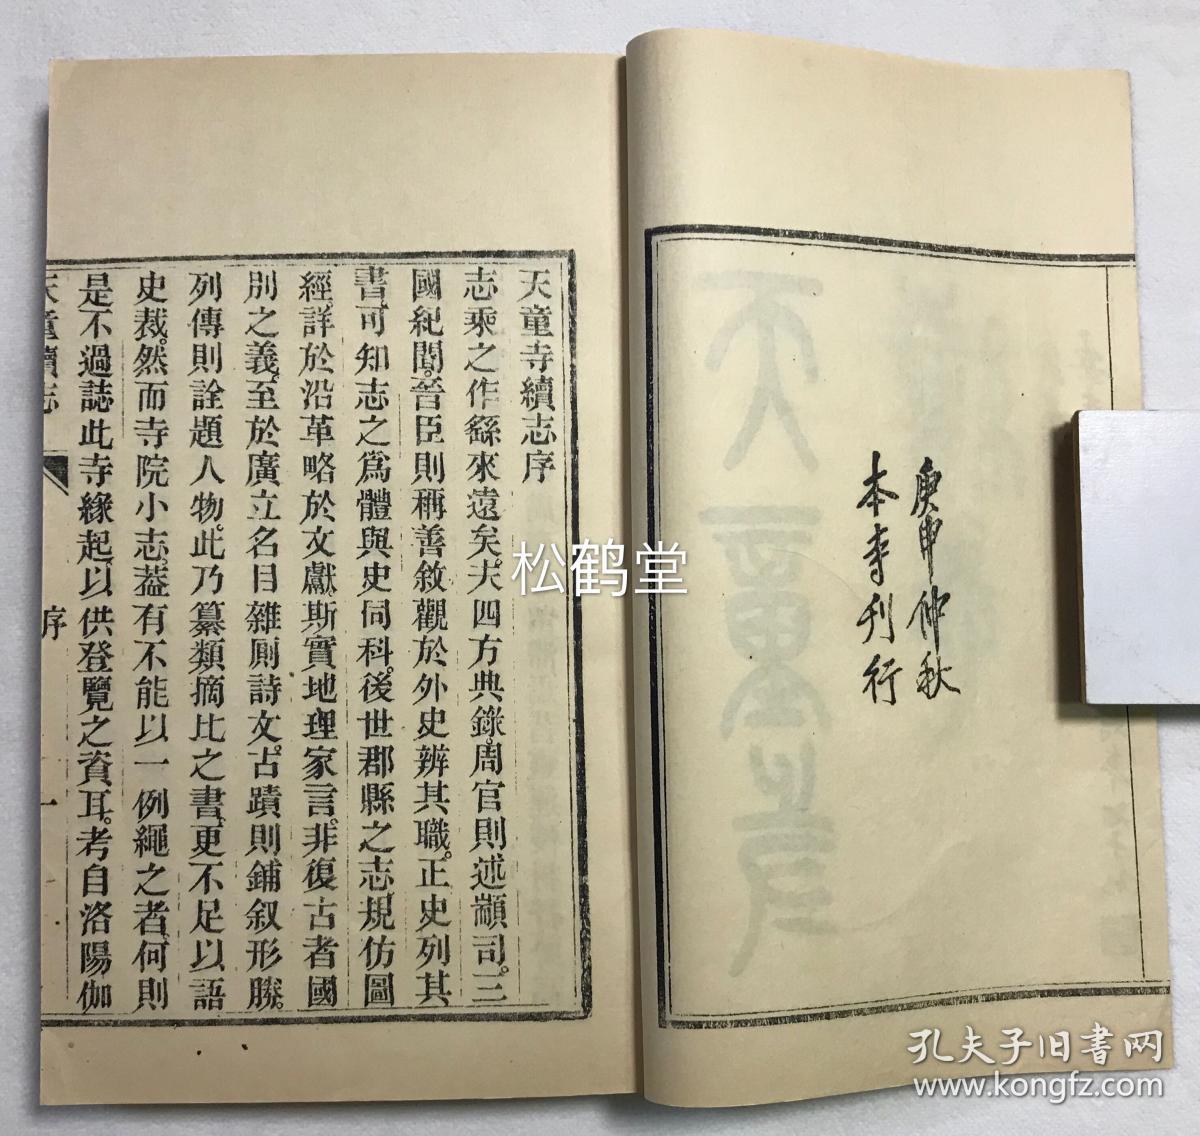 庚申仲秋
本寺刊行
天童寺續志序
志乘之作繇來遠矣夫四方典錄周官則述顓司三
國紀聞晉臣則稱善敘觀於外史辨其職正史列其
書可知志之爲體與史同科後世郡縣之志規仿圖
經詳於沿革略於文獻斯實地理家言非復古者國
別之義至於廣立名目雜廁詩文古蹟則鋪叙形勝
列傳則詮題人物此乃纂類摘比之書更不足以語
史裁然而寺院小志葢有不能以一例繩之者何則
是不過誌此寺緣起以供登覽之資耳考自洛陽伽
天童續志
序
一
松鹤堂
孔夫子旧书网
www.kongfz.com